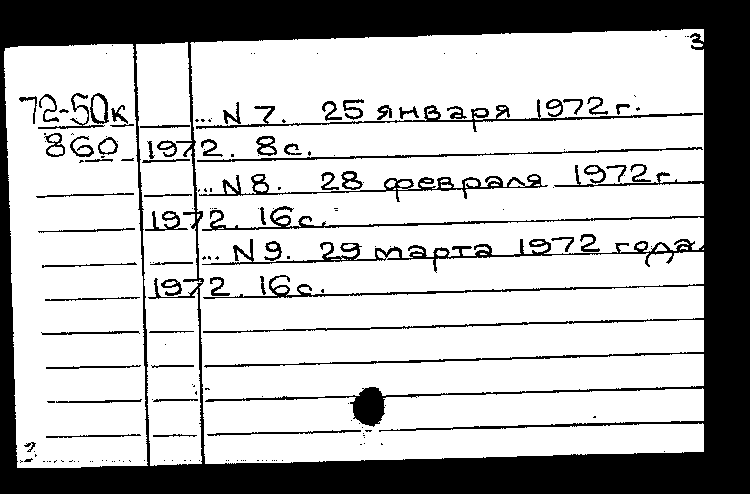 3
72-50к ... N 7. 25 января 1972 г.
860 1972. 8 с.
... N 8. 28 февраля 1972 г.
1972. 16 с.
... N 9. 29 марта 1972 года.
1972. 16 с.